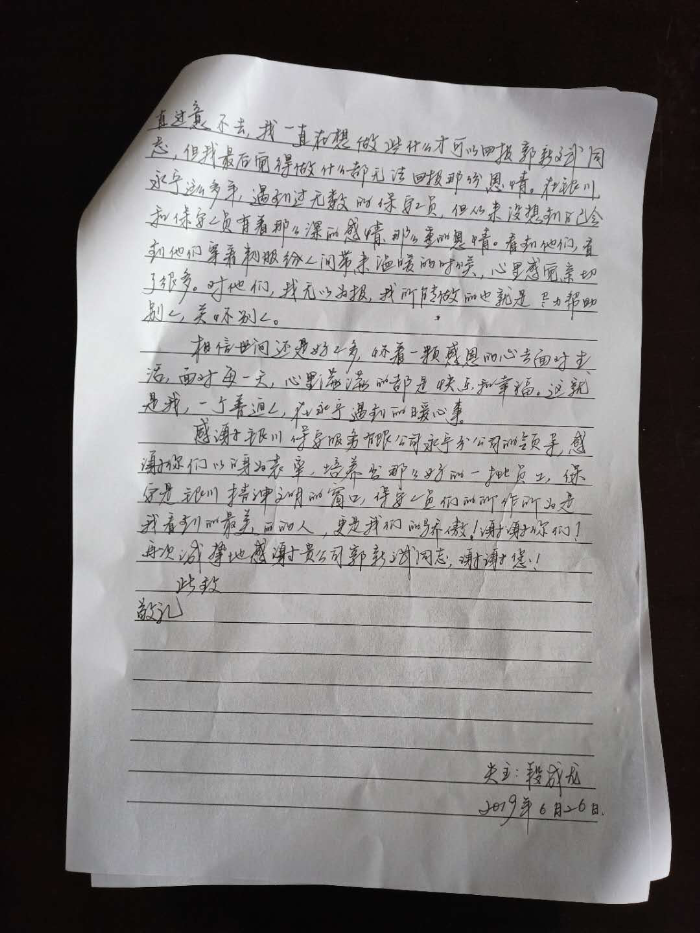 直过意不去,我一直在想做些什么才可以回报郭新武同
志,但我最后觉得做什么都无法回报那份恩情。在银川
永宁这么多年,遇到过无数的保安人员,但从来没想到自己会
和保安人员有着那么深的感情,那么重的恩情。看到他们,看
到他们穿着制服给人间带来温暖的时候,心里感觉亲切
了很多。对他们,我无以为报,我所能做的也就是尽力帮助
别人,关怀别人。
相信世间还是好人多,怀着一颗感恩的心去面对生
活,面对每一天,心里满满的都是快乐和幸福。这就
是我,一个普通人,在永宁遇到的暖心事。
感谢银川保安服务有限公司永宁分公司的领导,感
谢你们以身为表率,培养出那么好的一批员工,保
安是银川精神文明的窗口,保安人员们的所作所为是
我看到的最美丽的人,更是我们的骄傲!谢谢你们!
再次诚挚地感谢贵公司郭新武同志,谢谢您!!
此致
敬礼
失主:段成龙
2019年6月26日.